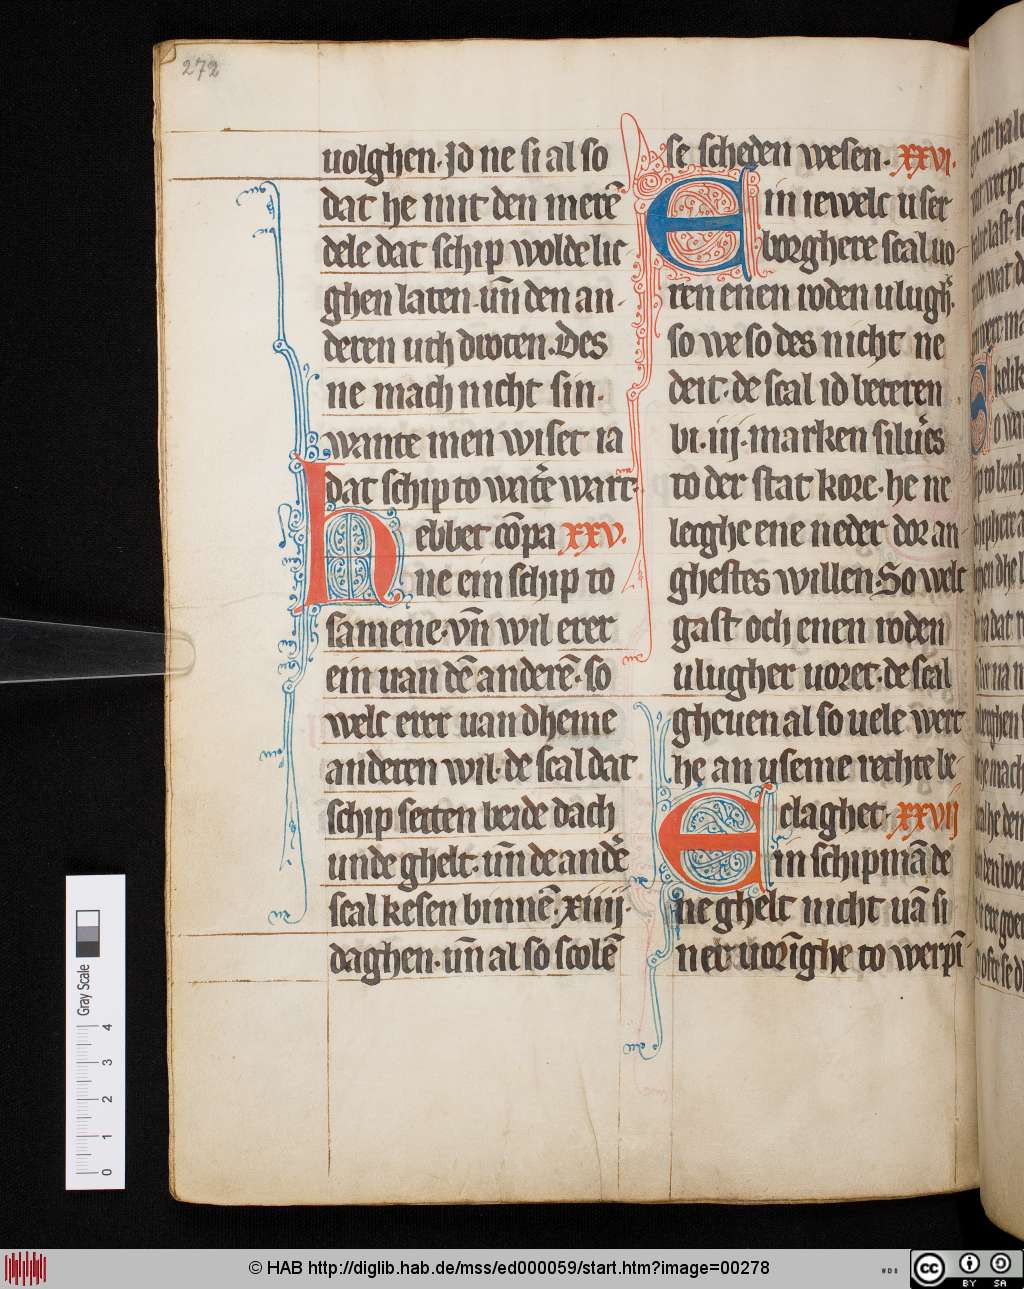 272
uolghen. Jd ne si al so
dat he mit den merē
dele dat schip wolde lic
ghen laten. uñ den an
deren uth droten. Des
ne mach nicht sin.
wante men wiset ia
dat schip to wat'e wart.
Hebbet cōpa XXV.
ne ein schip to
samene. vñ wil erer
ein uan dē anderē. so
welc erer uan dheme
anderen wil. de scal dat
schip setten beide dach
unde ghelt. uñ de and'e
scal kesen binnē. xiiij.
daghen. uñ al so scolē
se scheden wesen. XXVI.
Ein iewelc user
borghere scal uo
ren enen roden ulugh'.
so we so des nicht ne
deit. de scal id beteren
bi. iij. marken silu'es
to der stat kore. he ne
legghe ene neder dor an
ghestes willen. So welc
gast och enen roden
ulugher uoret. de scal
gheuen al so uele wert
he an useme rechte be
claghet. XXVII
Ein schipmā de
ne ghelt nicht uā si
ner uorīghe to werpī
Gray Scale
0 1 2 3 4
© HAB http://diglib.hab.de/mss/ed000059/start.htm?image=00278
cc BY SA